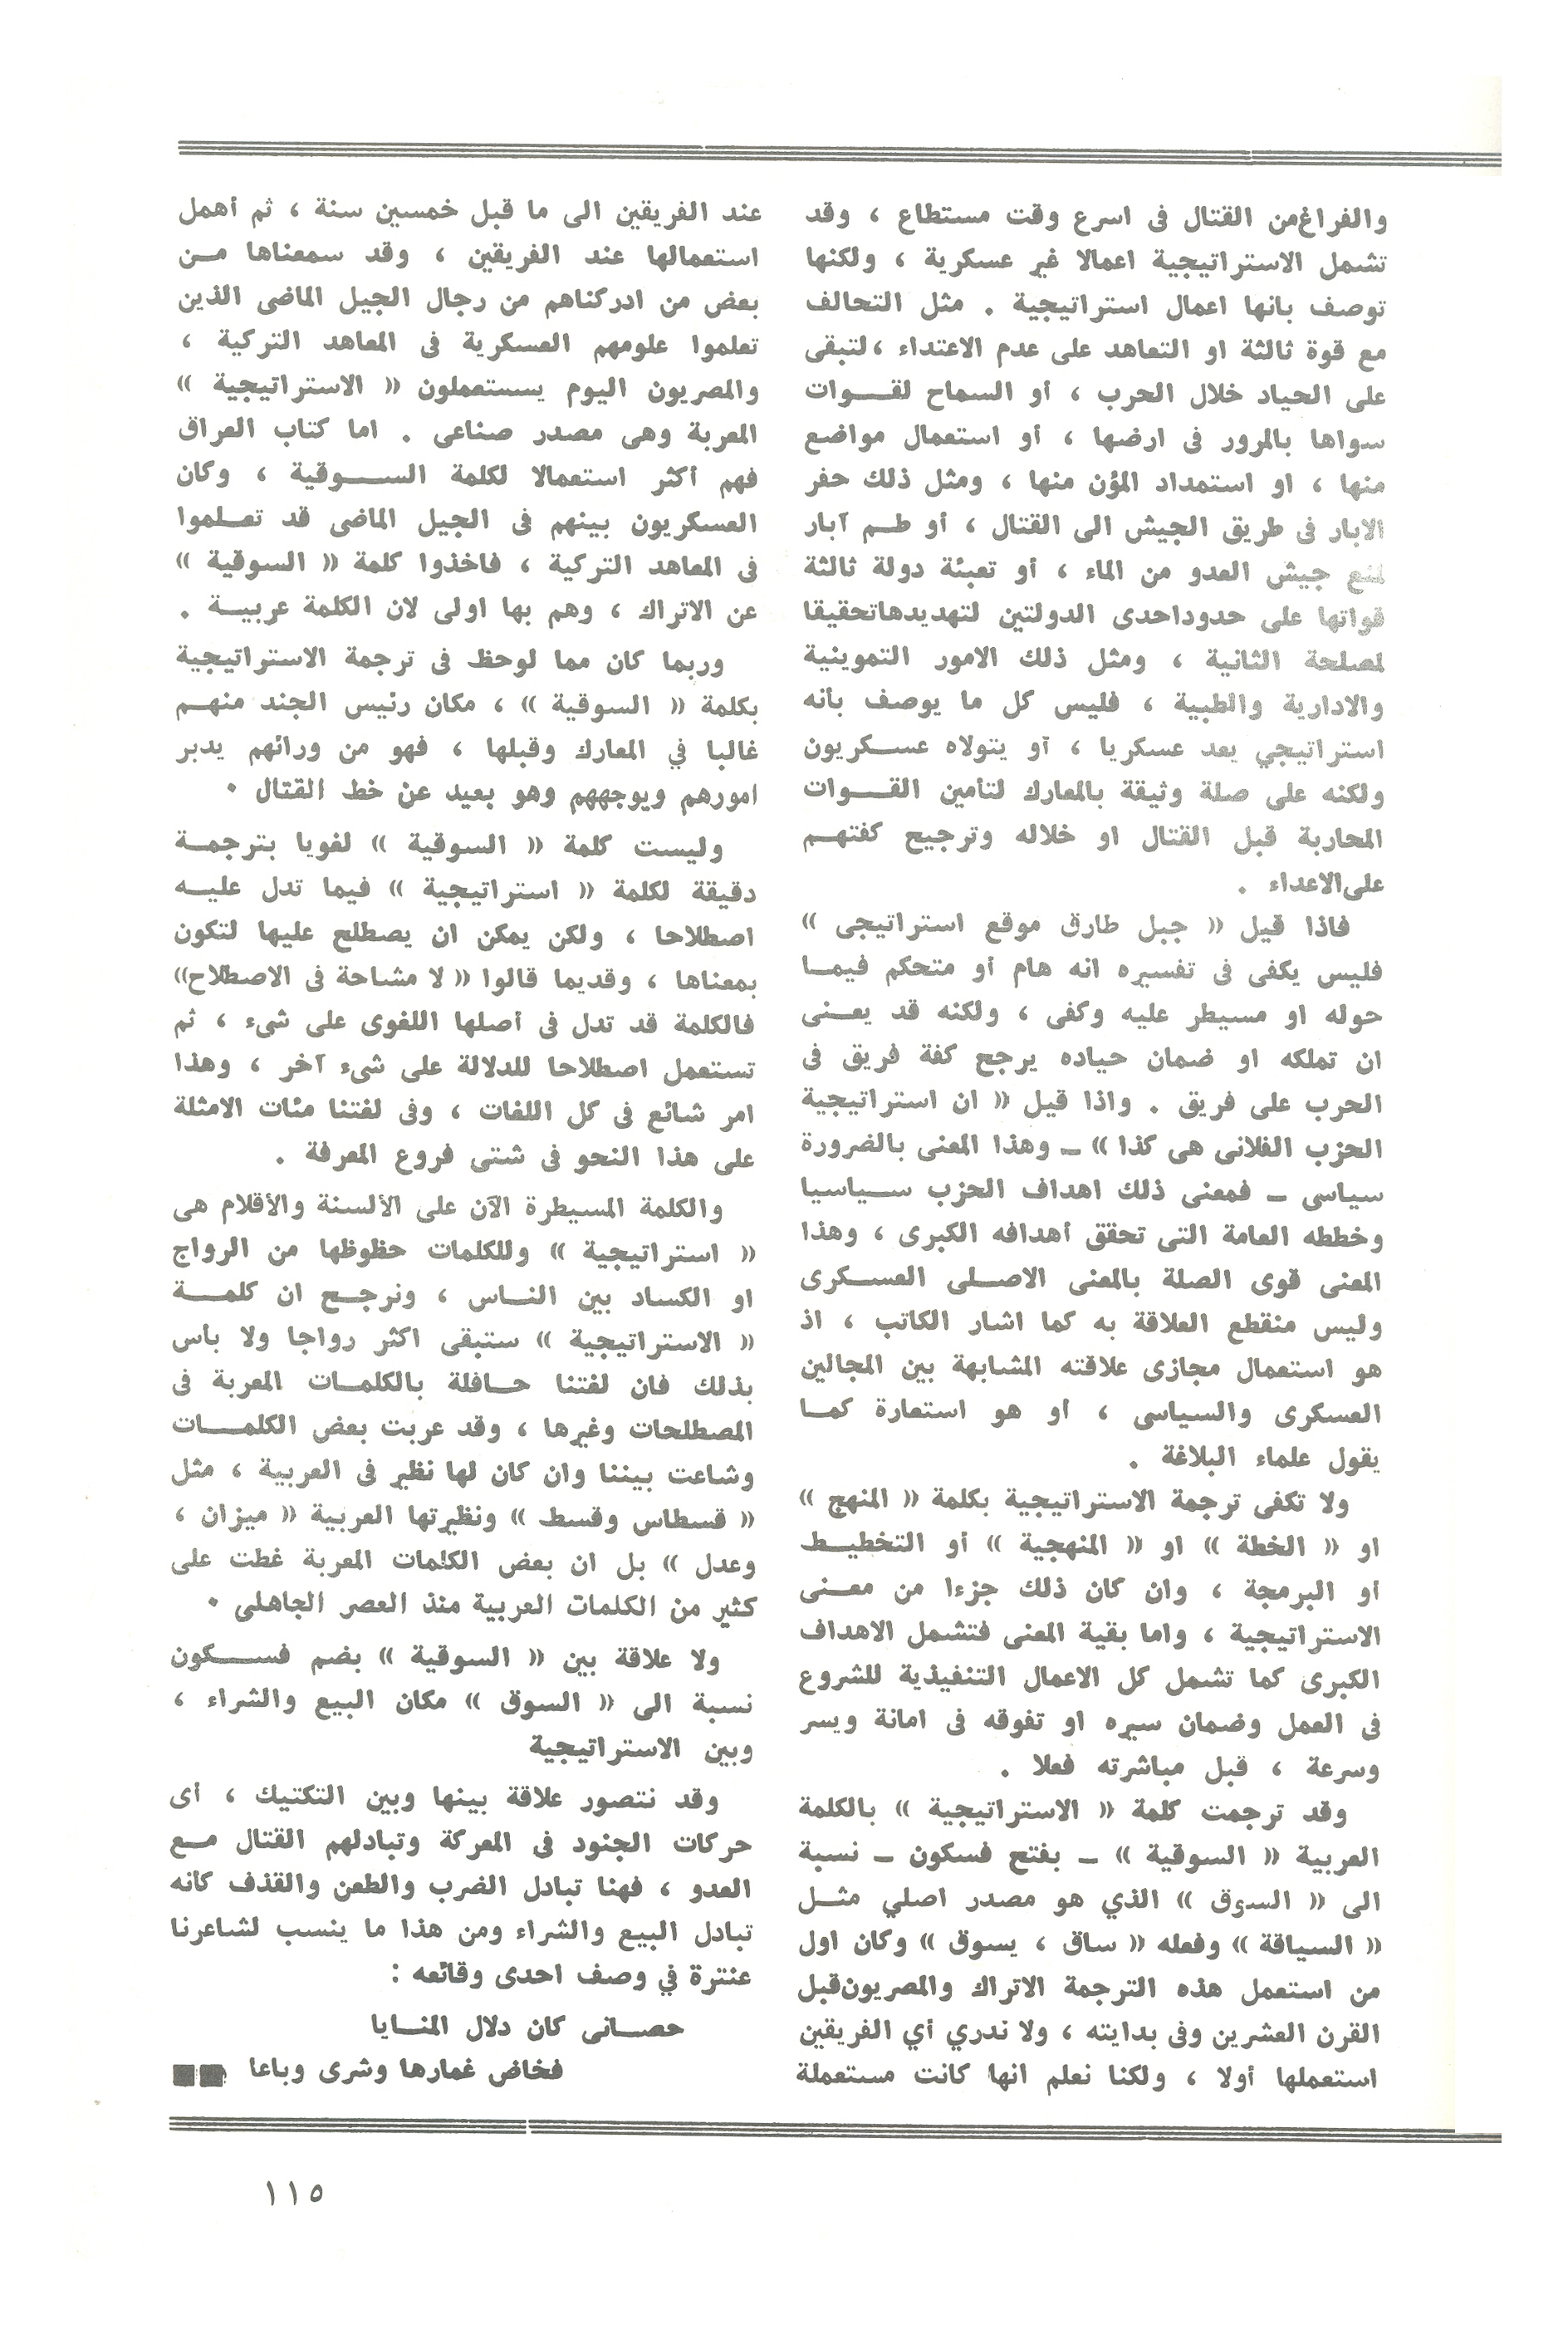 والفراغ من القتال فى اسرع وقت مستطاع ، وقد
تشمل الاستراتيجية اعمالا غير عسكرية ، ولكنها
توصف بانها اعمال استراتيجية . مثل التحالف
مع قوة ثالثة او التعاهد على عدم الاعتداء ، لتبقى
على الحياد خلال الحرب ، أو السماح لقـوات
سواها بالمرور فى ارضها ، أو استعمال مواضع
منها ، او استمداد المؤن منها ، ومثل ذلك حفر
الابار فى طريق الجيش الى القتال ، أو طـم آبار
لمنع جيش العدو من الماء ، أو تعبئة دولة ثالثة
قواتها على حدود احدى الدولتين لتهديدها تحقيقا
لمصلحة الثانية ، ومثل ذلك الامور التموينية
والادارية والطبية ، فليس كل ما يوصف بأنه
استراتيجي يعد عسكريا ، أو يتولاه عسـكريون
ولكنه على صلة وثيقة بالمعارك لتأمين القـوات
المحاربة قبل القتال او خلاله وترجيح كفتهـم
على الاعداء .
فاذا قيل « جبل طارق موقع استراتيجى »
فليس يكفى فى تفسيره انه هام أو متحكم فيمـا
حوله او مسيطر عليه وكفى ، ولكنه قد يعـنى
ان تملكه او ضمان حياده يرجح كفة فريق فى
الحرب على فريق . واذا قيل « ان استراتيجية
الحزب الفلانى هى كذا » ـ وهذا المعنى بالضرورة
سياسى ـ فمعنى ذلك اهداف الحزب سـياسيا
وخططه العامة التى تحقق أهدافه الكبرى ، وهذا
المعنى قوى الصلة بالمعنى الاصـلى العسـكرى
وليس منقطع العلاقة به كما اشار الكاتب ، اذ
هو استعمال مجازى علاقته المشابهة بين المجالين
العسكرى والسياسى ، أو هو استعارة كمـا
يقول علماء البلاغة .
ولا تكفى ترجمة الاستراتيجية بكلمة « المنهج »
او « الخطة » او « المنهجية » أو التخطيـط
أو البرمجة ، وان كان ذلك جزءا من معـنى
الاستراتيجية ، واما بقية المعنى فتشمل الاهداف
الكبرى كما تشمل كل الاعمال التنفيذية للشروع
فى العمل وضمان سيره او تفوقه فى امانة ويسر
وسرعة ، قبل مباشرته فعلا .
وقد ترجمت كلمة « الاستراتيجية » بالكلمة
العربية « السوقية » ـ بفتح فسكون ـ نسبة
الى « السوق » الذي هو مصدر اصلي مثـل
« السياقة » وفعله « ساق ، يسوق » وكان اول
من استعمل هذه الترجمة الاتراك والمصريون قبل
القرن العشرين وفى بدايته ، ولا ندري أي الفريقين
استعملها أولا ، ولكنا نعلم انها كانت مستعملة
عند الفريقين الى ما قبل خمسين سنة ، ثم أهمل
استعمالها عند الفريقين ، وقد سمعناها مـن
بعض من ادركناهم من رجال الجيل الماضى الذين
تعلموا علومهم العسكرية فى المعاهد التركية ،
والمصريون اليوم يستعملون « الاستراتيجية »
المعربة وهى مصدر صناعى . اما كتاب العراق
فهم أكثر استعمالا لكلمة السـوقية ، وكان
العسكريون بينهم فى الجيل الماضى قد تعـلموا
فى المعاهد التركية ، فاخذوا كلمة « السوقية »
عن الاتراك ، وهم بها اولى لان الكلمة عربيـة .
وربما كان مما لوحظ فى ترجمة الاستراتيجية
بكلمة « السوقية » ، مكان رئيس الجند منهـم
غالبا في المعارك وقبلها ، فهو من ورائهم يدبر
امورهم ويوجههم وهو بعيد عن خط القتال .
وليست كلمة « السوقية » لغويا بترجمـة
دقيقة لكلمة « استراتيجية » فيما تدل عليـه
اصطلاحا ، ولكن يمكن ان يصطلح عليها لتكون
بمعناها ، وقديما قالوا « لا مشاحة فى الاصطلاح »
فالكلمة قد تدل فى أصلها اللغوى على شىء ، ثم
تستعمل اصطلاحا للدلالة على شىء آخر ، وهذا
امر شائع فى كل اللغات ، وفى لغتنا مئات الامثلة
على هذا النحو فى شتى فروع المعرفة .
والكلمة المسيطرة الآن على الألسنة والأقلام هى
« استراتيجية » وللكلمات حظوظها من الرواج
او الكساد بين النـاس ، ونرجـح ان كلمـة
« الاستراتيجية » ستبقى اكثر رواجا ولا بأس
بذلك فان لغتنا حـافلة بالكلمـات المعربة فى
المصطلحات وغيرها ، وقد عربت بعض الكلمـات
وشاعت بيننا وان كان لها نظير فى العربية ، مثل
« قسطاس وقسط » ونظيرتها العربية « ميزان ،
وعدل » بل ان بعض الكلمات المعربة غطت على
كثير من الكلمات العربية منذ العصر الجاهلى .
ولا علاقة بين « السوقية » بضم فسـكون
نسبة الى « السوق » مكان البيع والشراء ،
وبين الاستراتيجية
وقد نتصور علاقة بينها وبين التكتيك ، أى
حركات الجنود فى المعركة وتبادلهم القتال مـع
العدو ، فهنا تبادل الضرب والطعن والقذف كأنه
تبادل البيع والشراء ومن هذا ما ينسب لشاعرنا
عنترة في وصف احدى وقائعه :
حصـانى كان دلال المنـايا
فخاض غمارها وشرى وباعا
١١٥